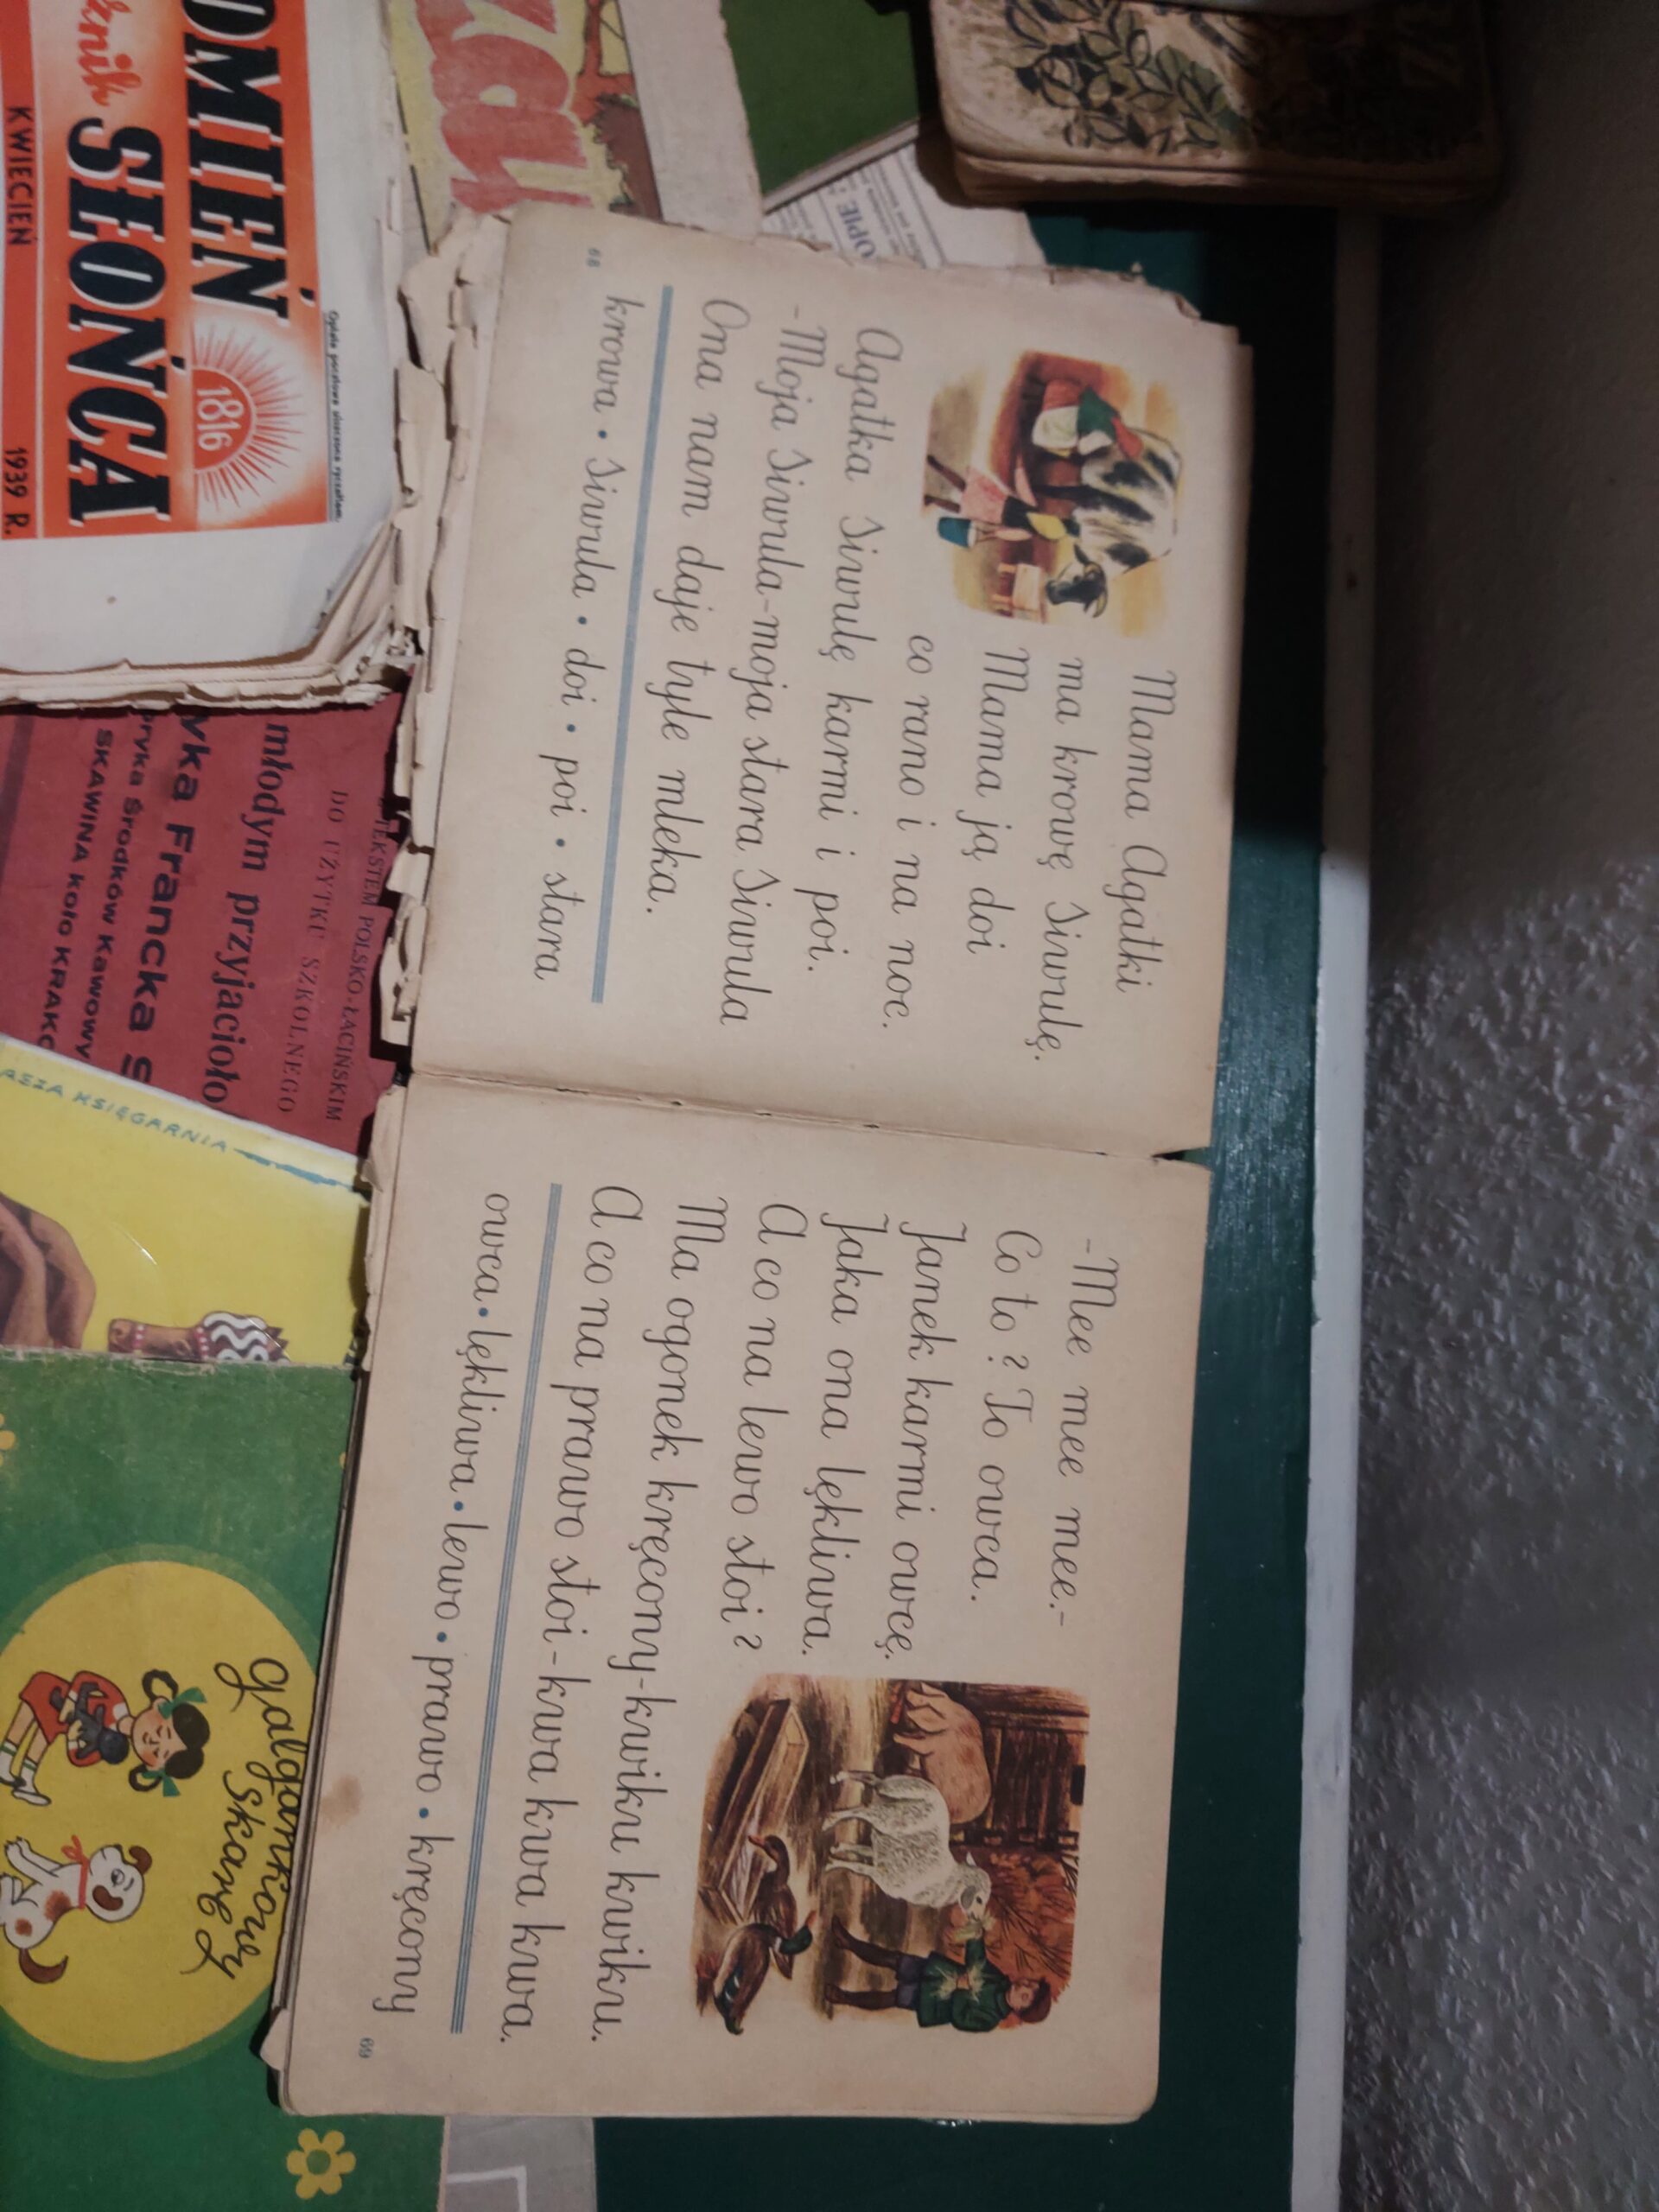 Mama Agatki
ma krowę Siwulę.
Mama ją doi
co rano i na noc.
Agatka Siwulę karmi i poi.
- Moja Siwula-moja stara Siwula
Ona nam daje tyle mleka.
krowa • Siwula • doi • poi • stara
68
-Mee mee mee.-
Co to? To owca.
Janek karmi owcę.
Jaka ona lękliwa.
A co na lewo stoi?
Ma ogonek kręcony-kwiku kwiku.
A co na prawo stoi-kwa kwa kwa.
owca • lękliwa • lewo • prawo • kręcony
69
OMIEŃ
SŁOŃCA
KWIECIEŃ
1939 R.
1816
Opłata pocztowa uiszczona ryczałtem.
OPIE
TEKSTEM POLSKO-ŁACIŃSKIM
DO UŻYTKU SZKOLNEGO
młodym przyjacioło
wka Francka S
ryka Środków Kawowy
SKAWINA koło KRAKO
ASZA KSIĘGARNIA
Gałgankowy
skarb